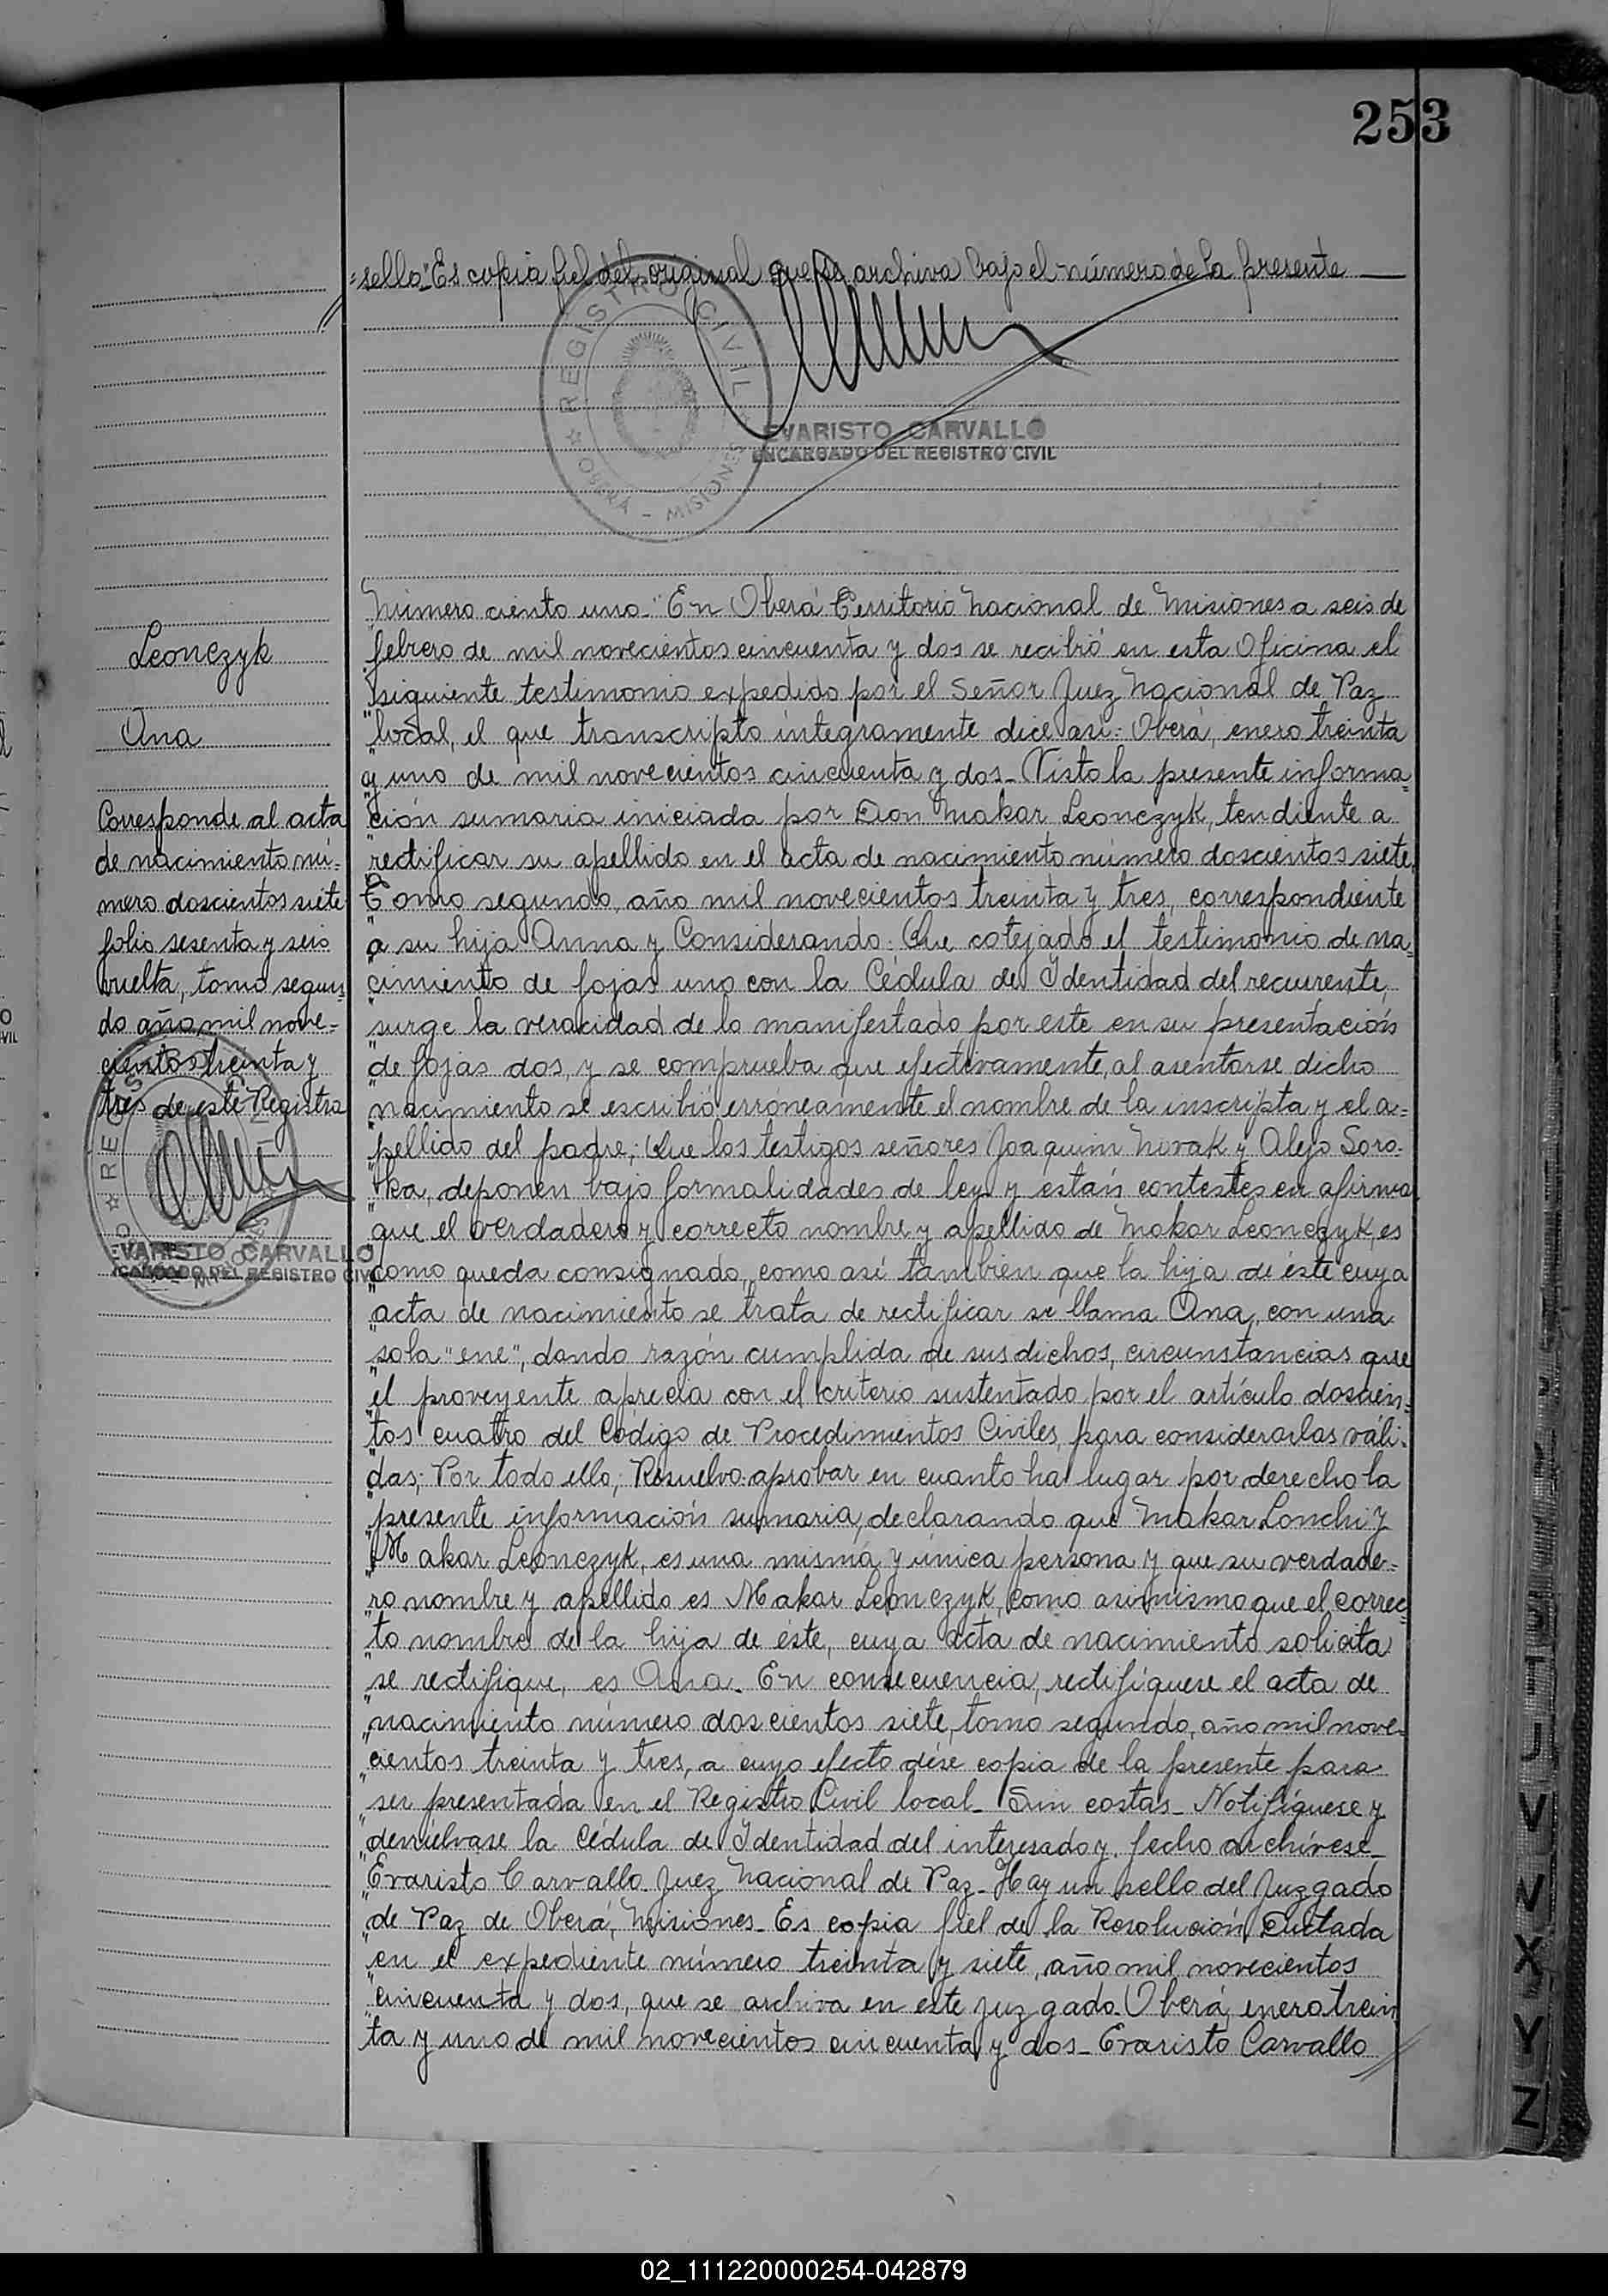 253
"sello". Es copia fiel del original que se archiva bajo el número de la presente
REGISTRO CIVIL
OBERÁ - MISIONES
EVARISTO CARVALLO
ENCARGADO DEL REGISTRO CIVIL
Leonczyk
Ana
Corresponde al acta
de nacimiento nú-
mero doscientos siete
folio sesenta y seis
vuelta, tomo segun-
do año mil nove-
cientos treinta y
tres de este Registro
EVARISTO CARVALLO
ENCARGADO DEL REGISTRO CIVIL
Número ciento uno. "En Oberá Territorio Nacional de Misiones a seis de
febrero de mil novecientos cincuenta y dos se recibió en esta Oficina el
siguiente testimonio expedido por el Señor Juez Nacional de Paz
"local, el que transcripto íntegramente dice así: Oberá, enero treinta
y uno de mil novecientos cincuenta y dos_ Visto la presente informa=
"ción sumaria iniciada por Don Makar Leonczyk, tendiente a
"rectificar su apellido en el acta de nacimiento número doscientos siete,
Tomo segundo, año mil novecientos treinta y tres, correspondiente
"a su hija Anna y Considerando: Que cotejado el testimonio de na=
"cimiento de fojas uno con la Cédula de Identidad del recurrente,
"surge la veracidad de lo manifestado por este en su presentación
"de fojas dos, y se comprueba que efectivamente, al asentarse dicho
"nacimiento se escribió erróneamente el nombre de la inscripta y el a=
"pellido del padre; Que los testigos señores Joaquin Novak y Alejo Soro-
"ka, deponen bajo formalidades de ley y están contestes en afirma
"que el verdadero y correcto nombre y apellido de Makar Leonczyk, es
"como queda consignado, como así también que la hija de éste cuya
"acta de nacimiento se trata de rectificar se llama Ana, con una
"sola "ene", dando razón cumplida de sus dichos, circunstancias que
"el proveyente aprecia con el criterio sustentado por el artículo doscien=
"tos cuatro del Código de Procedimientos Civiles, para considerarlas váli-
"das; Por todo ello; Resuelvo: aprobar en cuanto ha lugar por derecho la
"presente información sumaria, declarando que Makar Lonchi y
"Makar Leonczyk, es una misma y única persona y que su verdade=
"ro nombre y apellido es Makar Leonczyk, como asimismo que el correc=
"to nombre de la hija de éste, cuya acta de nacimiento solicita
"se rectifique, es Ana. En consecuencia, rectifíquese el acta de
"nacimiento número doscientos siete, tomo segundo, año mil nove=
"cientos treinta y tres, a cuyo efecto dése copia de la presente para
"ser presentada en el Registro Civil local_ Sin costas_ Notifíquese y
"devuelvase la Cédula de Identidad del interesado y fecho archívese_
"Evaristo Carvallo. Juez Nacional de Paz_ Hay un sello del Juzgado
"de Paz de Oberá, Misiones_ Es copia fiel de la Resolución Dictada
"en el expediente número treinta y siete, año mil novecientos
"cincuenta y dos, que se archiva en este juzgado. Oberá, enero trein
"ta y uno de mil novecientos cincuenta y dos_ Evaristo Carvallo
S
T
U
V
X
Y
Z
02_111220000254-042879